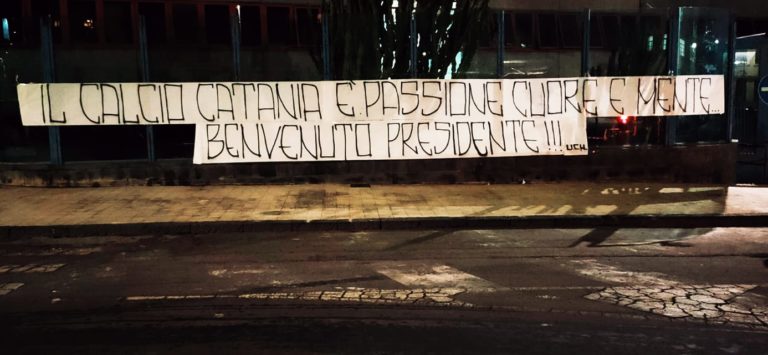 IL CALCIO CATANIA È PASSIONE CUORE E MENTE...
BENVENUTO PRESIDENTE!!! UCH.